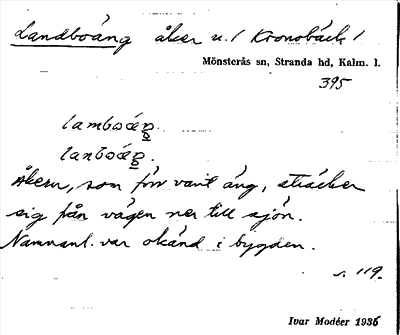 Landboäng åker u. / Kronobäck /
Mönsterås sn, Stranda hd, Kalm. l.
395
lamboäŋ.
lanboäŋ.
Åkern, som förr varit äng, sträcker
sig från vägen ner till sjön.
Namnanl. var okänd i bygden.
s. 119.
Ivar Modéer 1936